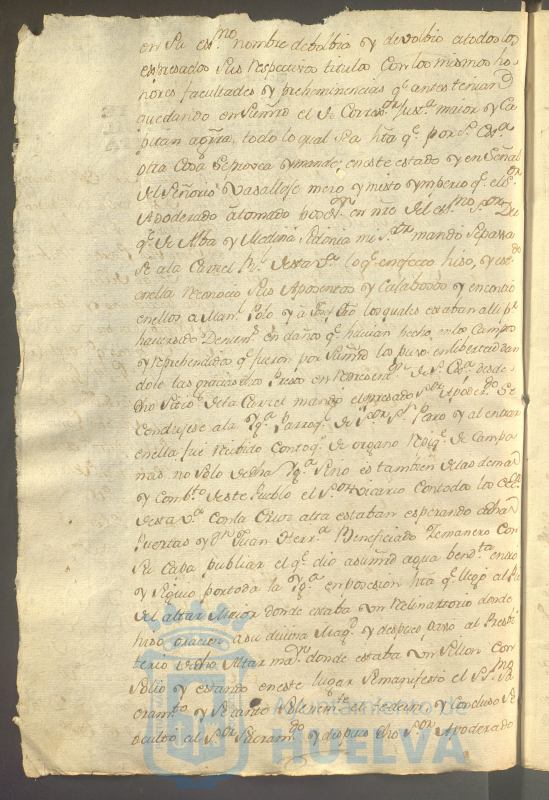 en su ex.mo nombre debolbia y devolbio a todos los
expresados sus respectivos titulos con los mismos ho-
nores facultades y preheminencias q.e antes tenian
quedando en Su mrd el de Corre.or Just.a maior y Ca-
pitan a grra, todo lo qual sea hta q.e por S. Ex.a
otra cosa se provea y mande; en este estado y en señal
del Señorio Vasallaje mero y misto ymperio q.e el S.or
Apoderado a tomado poses.on en nre del ex.mo S.or Du-
q.e de Alba y Medina Sidonia mi S.or mando se pasa-
se a la Carzel R.l desta V.a lo q.e en efecto hiso, y estando
en ella reconocio sus Aposentos y Calabosos y encontro
en ellos a Man.l Polo y a los quales estaban alli p.r
haverse en daños q.e havian hecho en los Campos
y reprehendidos q.e fueron por Su mrd los puso en libertad dan-
dole las gracias dho Preso en representas.on de S. Ex.a desde
dho sitio de la Carzel mando el expresado S.or Apodedo Se
condujese a la Yg.a Parroq.l de S.or S.n Pedro y al entrar
en ella fue recibido con toq.e de organo repiq.e de Campa-
nas no solo de dha Yg.a Sino es tambien de las demas
y Comb.tos deste Pueblo el S.or Vicario con todos los
desta V.a con la Cruz alta estaban esperando a dhas
Puertas y D.n Juan Beneficiado Semanero con
su Capa publiar el q.e dio a su mrd agua bend.ta en
y siguio por toda la Yg.a en posesion hta q.e llego al Pie
del altar Maior donde estaba un reclinatorio donde
hiso oracion a su divina Mag.d y despues paso al Presbi-
terio de dho Altar ma.or donde estaba un Sillon con
solio y estando en este lugar se manifesto el SS.mo Sa-
cram.to y se canto solemnem.te el tedeum y concluso se
oculto al S.or Sacram.do y dispuso dho S.or Apoderado
Ayuntamiento de
HUELVA